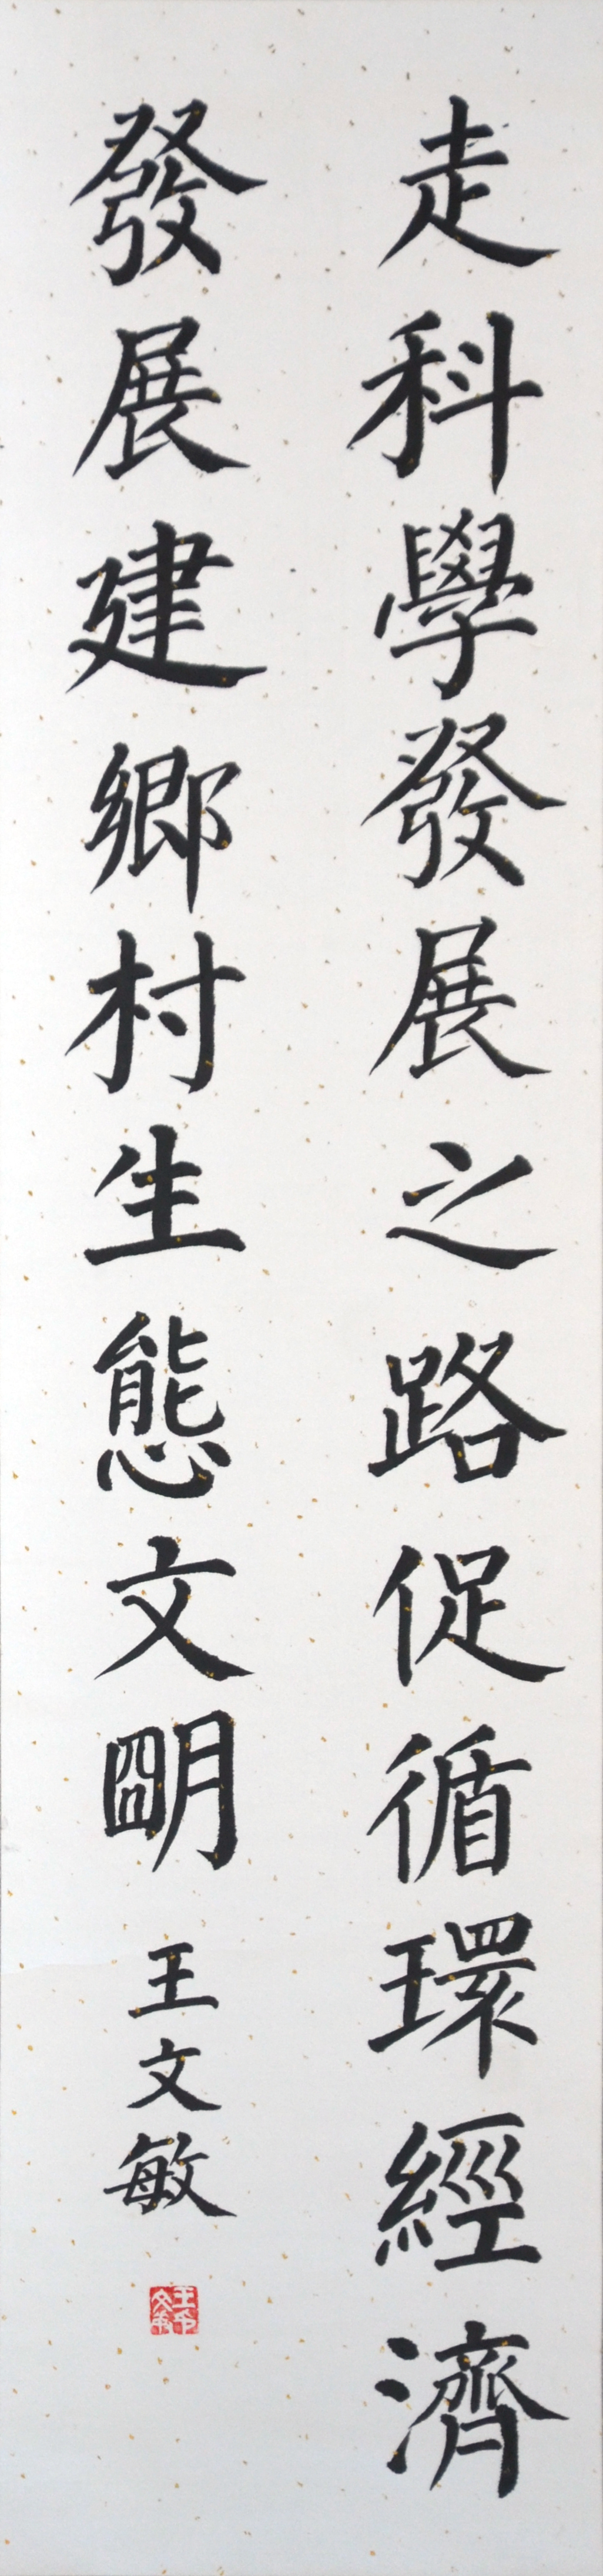 走科學發展之路促循環經濟
發展建鄉村生態文朙
王文敏